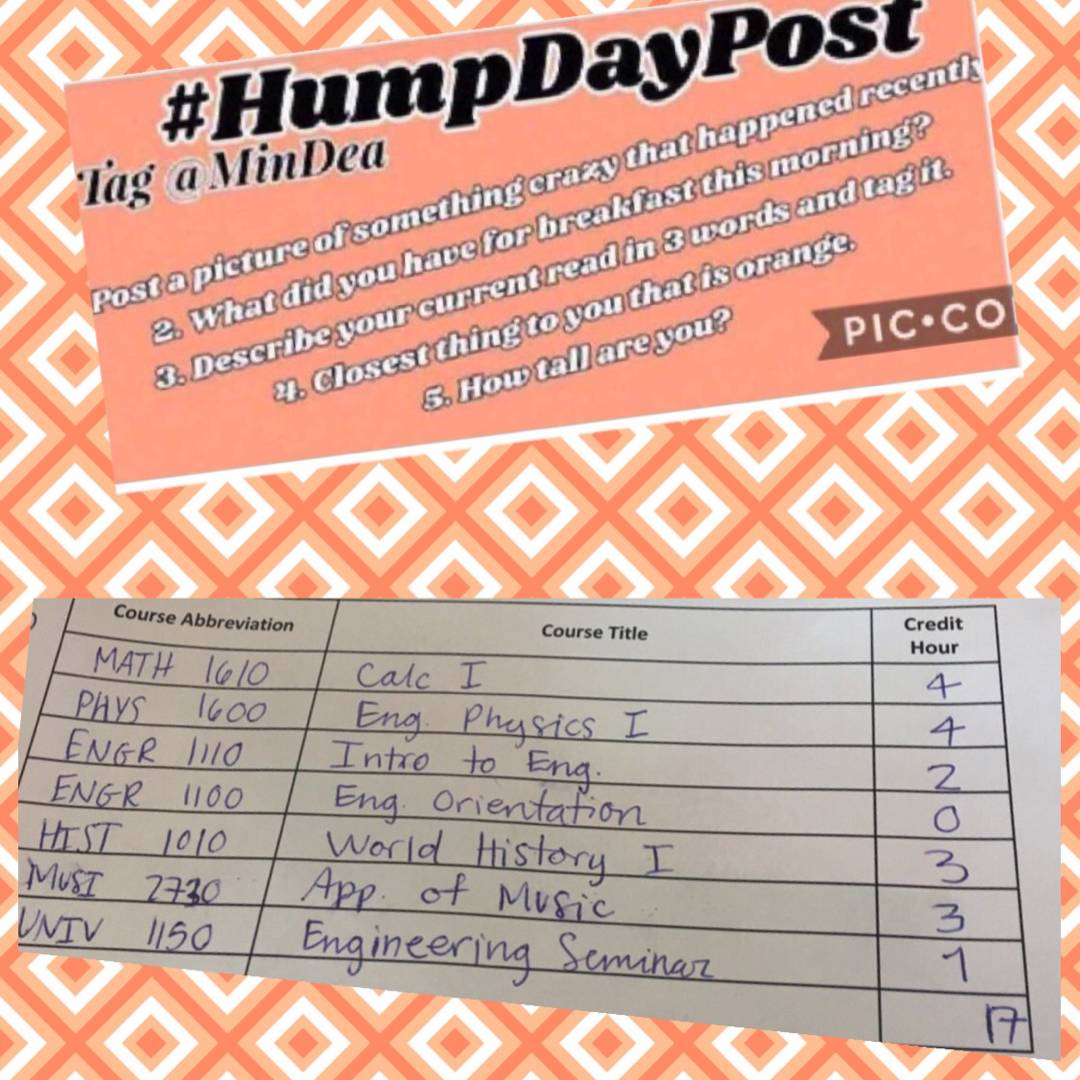 #HumpDayPost
Tag @MinDea
Post a picture of something crazy that happened recently
2. What did you have for breakfast this morning?
3. Describe your current read in 3 words and tag it.
4. Closest thing to you that is orange.
5. How tall are you?
PIC•CO
Course Abbreviation Course Title Credit Hour
MATH 1610 Calc I 4
PHYS 1600 Eng. Physics I 4
ENGR 1110 Intro to Eng. 2
ENGR 1100 Eng. Orientation 0
HIST 1010 World History I 3
MUSI 2730 App. of Music 3
UNIV 1150 Engineering Seminar 1
17